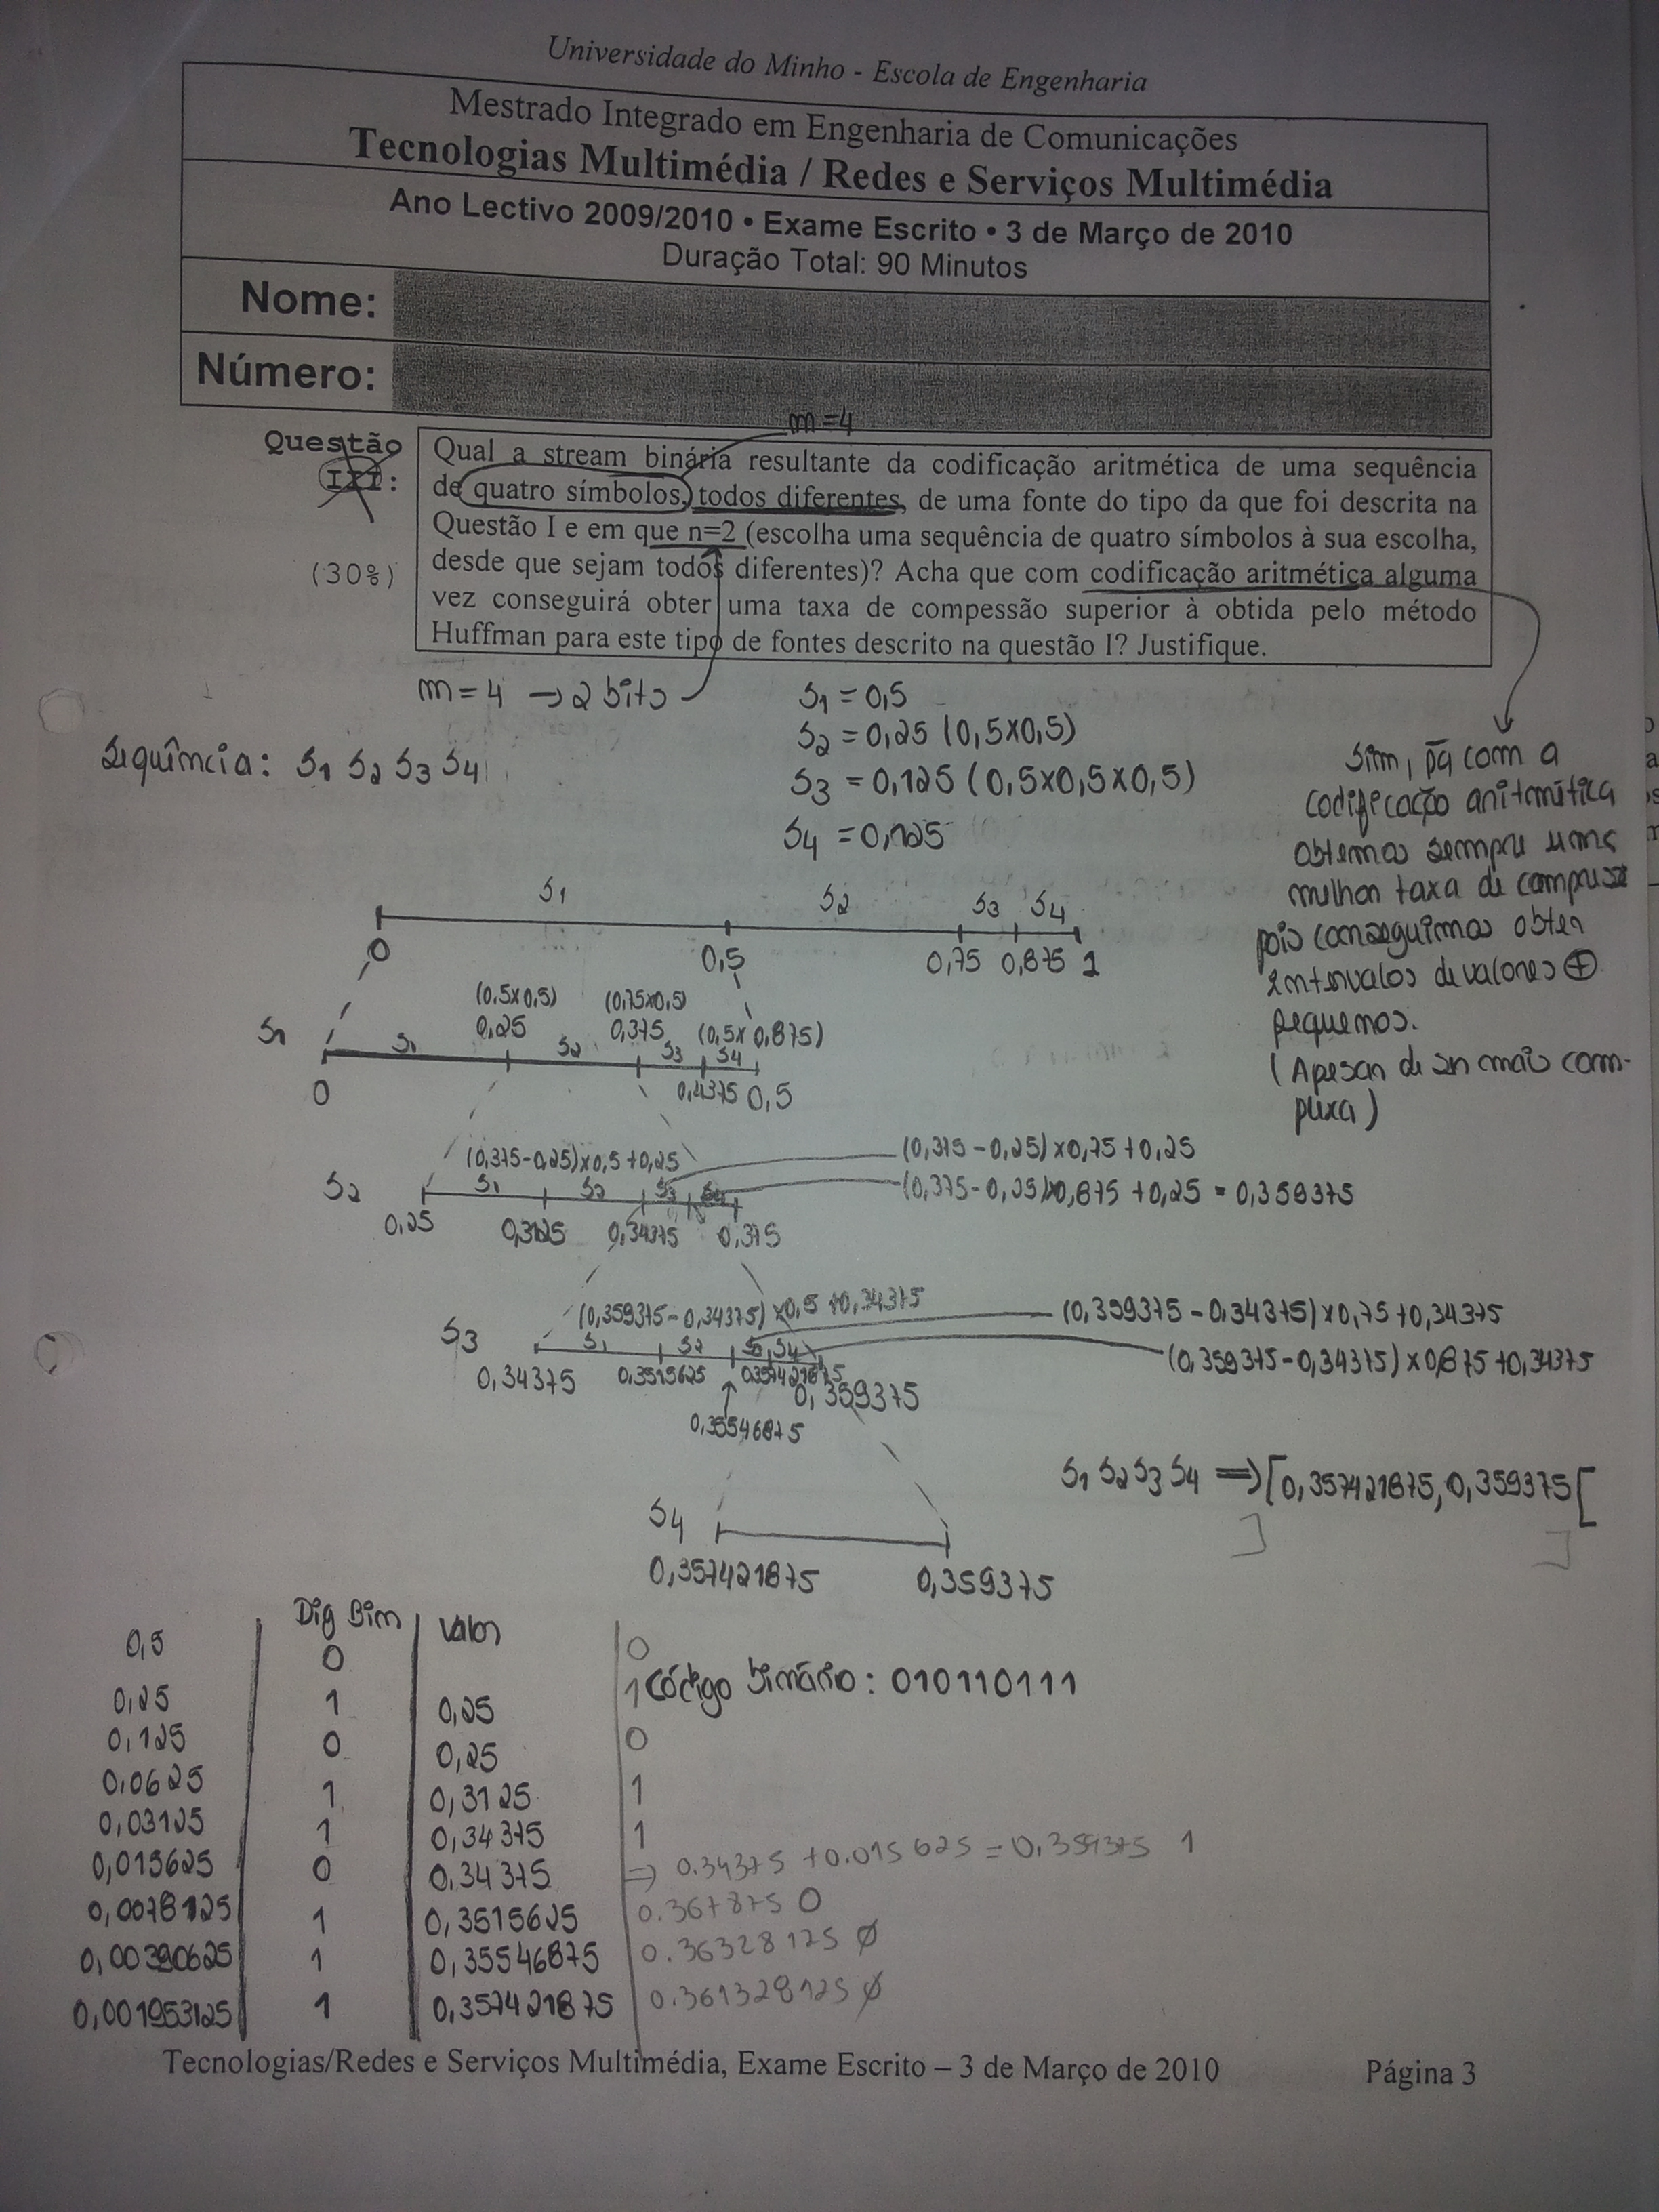 Universidade do Minho - Escola de Engenharia
Mestrado Integrado em Engenharia de Comunicações
Tecnologias Multimédia / Redes e Serviços Multimédia
Ano Lectivo 2009/2010 • Exame Escrito • 3 de Março de 2010
Duração Total: 90 Minutos
Nome:
Número:
m=4
Questão
III:
(30%)
Qual a stream binária resultante da codificação aritmética de uma sequência
de quatro símbolos, todos diferentes, de uma fonte do tipo da que foi descrita na
Questão I e em que n=2 (escolha uma sequência de quatro símbolos à sua escolha,
desde que sejam todos diferentes)? Acha que com codificação aritmética alguma
vez conseguirá obter uma taxa de compessão superior à obtida pelo método
Huffman para este tipo de fontes descrito na questão I? Justifique.
m=4 → 2 bits
Sequência: S1 S2 S3 S4
S1 = 0,5
S2 = 0,25 (0,5x0,5)
S3 = 0,125 (0,5x0,5x0,5)
S4 = 0,125
Sim, pq com a
codificação aritmética
obtemos sempre uma
melhor taxa de compressã
pois conseguimos obter
intervalos de valores +
pequenos.
(Apesar de ser mais com-
plexa)
S1 S2 S3 S4
0 0,5 0,75 0,875 1
(0,5x0,5) (0,75x0,5)
S1 0,25 0,375 (0,5x0,875)
S1 S2 S3 S4
0 0,4375 0,5
(0,375-0,25)x0,5+0,25 (0,375-0,25)x0,75+0,25
S2 S1 S2 S3 S4 (0,375-0,25)x0,875+0,25 = 0,359375
0,25 0,3125 0,34375 0,375
(0,359375-0,34375)x0,5+0,34375 (0,359375-0,34375)x0,75+0,34375
S3 S1 S2 S3 S4 (0,359375-0,34375)x0,875+0,34375
0,34375 0,3515625 0,357421875 0,359375
0,35546875
S1 S2 S3 S4 ⇒ [0,357421875, 0,359375[
S4
0,357421875 0,359375
Dig Bin Valor
0,5 0 0
Código binário: 010110111
0,25 1 0,25 1
0,125 0 0,25 0
0,0625 1 0,3125 1
0,03125 1 0,34375 1
0,015625 0 0.34375 ⇒ 0.34375 + 0.015625 = 0,359375 1
0,0078125 1 0,3515625 0.367875 0
0,00390625 1 0,35546875 0.36328125 Ø
0,001953125 1 0,357421875 0.361328125 Ø
Tecnologias/Redes e Serviços Multimédia, Exame Escrito – 3 de Março de 2010 Página 3